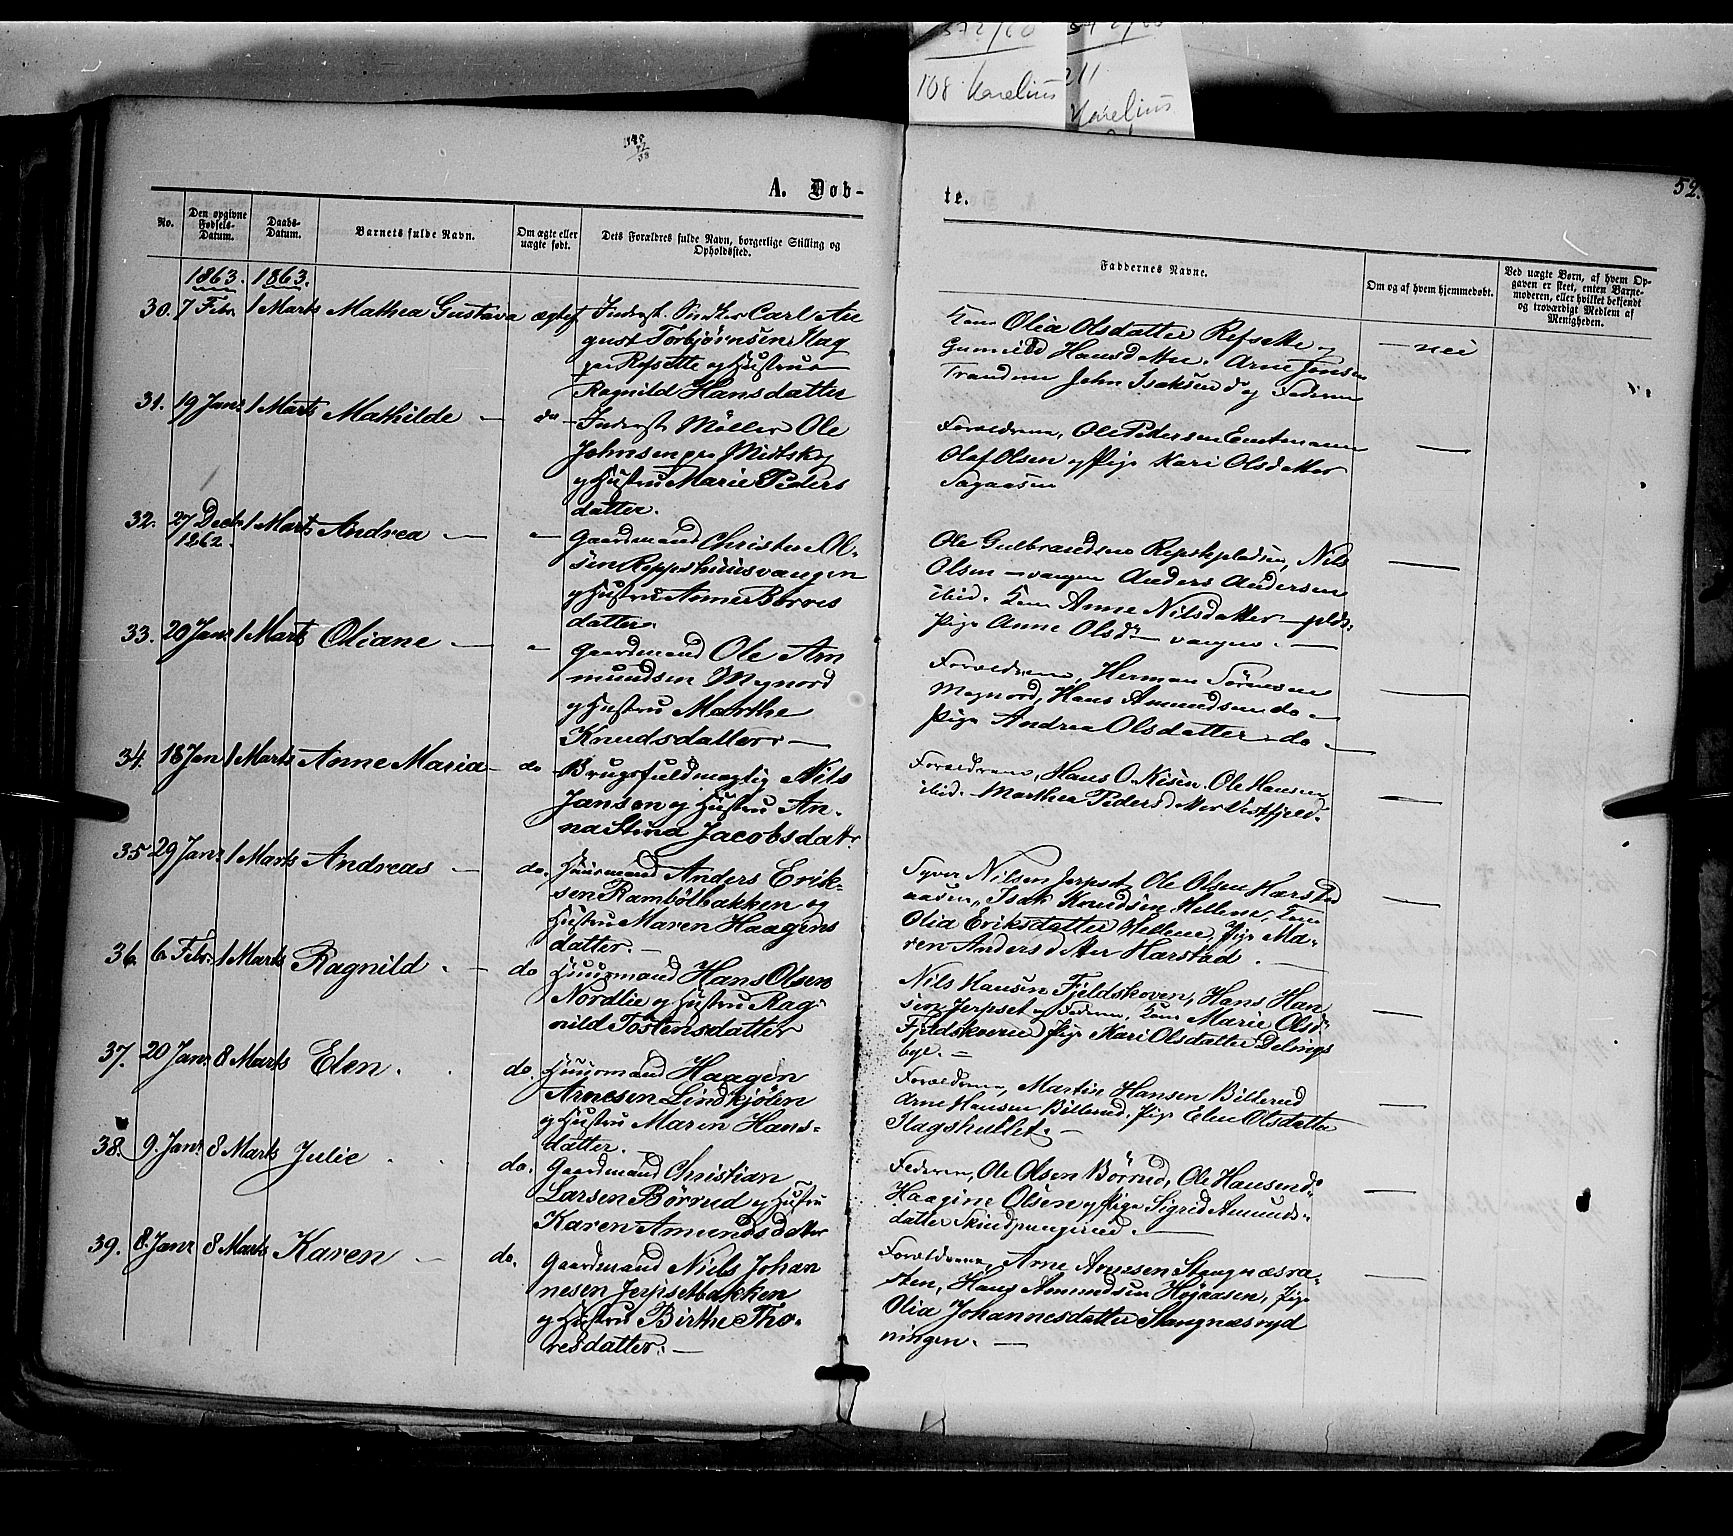 108 Karelius
211
Karelius
52.
A. Døb-
te.
No.
Den opgivne Fødsels-Datum.
Daabs-Datum.
Barnets fulde Navn.
Om ægte eller uægte født.
Dets Forældres fulde Navn, borgerlige Stilling og Opholdssted.
Faddernes Navne.
Om og af hvem hjemmedøbt.
Ved uægte Børn, af hvem Opgaven er skeet, enten Barnemoderen, eller hvilket bekjendt og troværdigt Medlem af Menigheden.
1863. 1863.
30. 7 Febr. 1 Marts Mathea Gustava ægtef
Inderst Carl Au
gust Torbjørnsen Flag
Refsette og Hustrue
Ragnild Hansdatter
Kone Olia Olsdatter Refsette og
Gunnild Hansdatter, Arne Jonsen
Tranden John Isaksen do og Faderen
nei
31. 19 Janr 1 Marts Mathilde — do
Inderst Møller Ole
Johnsen pr Midtskog
og Hustru Marie Peders
datter.
Forældrene, Ole Pedersen
Olaf Olsen og Pige Kari Olsdatter
Sagaasen
32. 27 Decb 1862. 1 Marts Andrea — "
Gaardmand Christen Ol-
sen Reppeshuusvangen
og Hustru Anne Borres
datter.
Ole Gulbrandsen Nils
Olsen — vangen Anders Andersen
ibid. Kone Anne Nilsdatter — plds.
Pige Anne Olsdr — vangen. —
33. 20 Janr 1 Marts Oliane — "
Gaardmand Ole Am
mundsen Mognord
og Hustru Marthe
Knudsdatter. —
Forældrene, Herman Sørensen
Mognord, Hans Amundsen do —
Pige Andrea Olsdatter do —
34. 18 Jan 1 Marts Anne Maria — do
Brugsfuldmægtig Nils
Jansen og Hustru An-
na Stina Jacobsdatr
Forældrene, Hans O. Ole Hansen
ibid. Marthea Pedersdatter
35. 29 Janr 1 Marts Andreas — do.
Huusmand Anders Erik-
sen Rambølbakken og
Hustru Maren Haagens
datter. —
Syver Nilsen Jerpset, Ole Olsen Harstad
aasen, Isak Knudsen Hellene, Kone
Olia Eriksdatter Hellene, Pige Ma-
ren Andersdatter Harstad. —
36. 6 Febr. 1 Marts Ragnild. — do
Huusmand Hans Olsen
Nordlie og Hustru Rag-
nild Tostensdatter
Nils Hansen Fjeldskoven, Hans Han
sen Jerpset og Faderen, Kone Marie Olsdr
Fjeldskoven, Pige Kari Olsdatter Delings
bye. —
37. 20 Janr 8 Marts Elen. do.
Huusmand Haagen
Arnesen Lindkjølen
og Hustru Maren Hans-
datter.
Forældrene, Martin Hansen Billerud
Arne Hansen Billerud, Pige Elen Olsdatter
Slagshullet. —
38. 9. Janr 8 Marts Julie. do.
Gaardmand Christian
Larsen Børrud og Hustru
Karen Amundsdatter
Faderen, Ole Olsen Børrud, Ole Hansen do
Haagine Olsen og Pige Sigrid Amunds-
datter Skindpungrud. —
39. 8. Janr 8 Marts Karen — do.
Gaardmand Niels Johan
nesen Jerpsetbakken
og Hustru Birthe Tho-
resdatter. —
Forældrene, Arne Arnesen Stangnæsra-
sten, Hans Amundsen Højaasen, Pige
Olia Johannesdatter Stangnæsryd
ningen. —